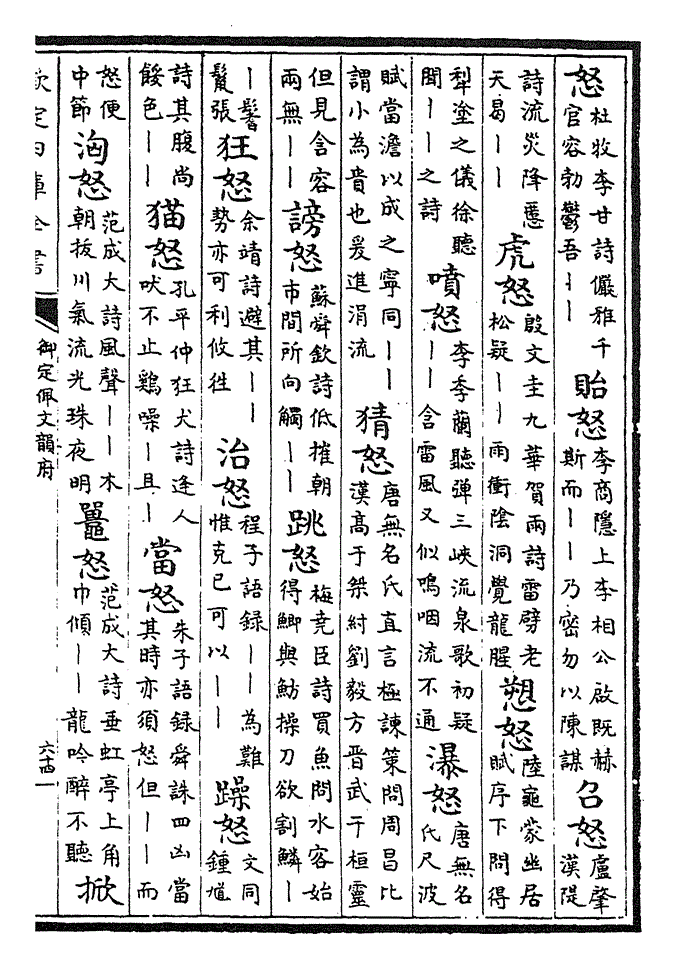 怒 杜牧李甘詩儼雅千官容勃鬱吾丨丨 貽怒 李商隱上李相公啟既赫斯而丨丨乃密勿以陳謀 召怒 盧肇漢隄
詩流災降慝天曷丨丨 虎怒 殷文圭九華賀雨詩雷劈老松疑丨丨雨衝陰洞覺龍腥 愬怒 陸龜蒙幽居賦序下問得
犁塗之儀徐聽聞丨丨之詩 噴怒 李季蘭聽彈三峽流泉歌初疑丨丨含雷風又似嗚咽流不通 瀑怒 唐無名氏尺波
賦當澹以成之寧同丨丨謂小為貴也爰進涓流 猜怒 唐無名氏直言極諫策問周昌比漢髙于桀紂劉毅方晋武于桓靈
但見含容兩無丨丨 謗怒 蘇舜欽詩低摧朝市間所向觸丨丨 跳怒 梅堯臣詩買魚問水客始得鯽與魴操刀欲割鱗丨
丨鬐鬣張 狂怒 余靖詩避其丨丨勢亦可利攸徃 治怒 程子語録丨丨為難惟克已可以丨丨 躁怒 文同鍾馗
詩其腹尚餒色丨丨 猫怒 孔平仲狂犬詩逢人吠不止鷄噪丨且丨 當怒 朱子語録舜誅四凶當其時亦須怒但丨丨而
怒便中節 洶怒 范成大詩風聲丨丨木朝拔川氣流光珠夜明 鼉怒 范成大詩垂虹亭上角巾傾丨丨龍吟醉不聽 掀
欽定四庫全書
御定佩文韻府
六十四一